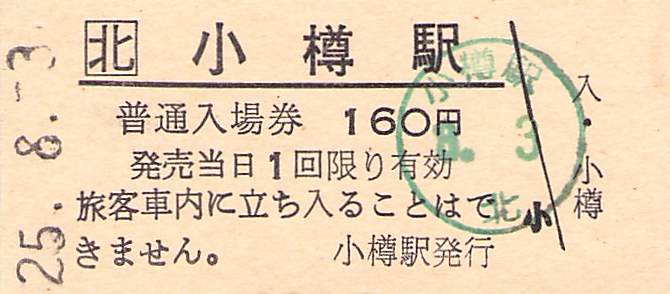 北 小樽駅
普通入場券 160円
発売当日1回限り有効
旅客車内に立ち入ることはで
きません。 小樽駅発行
25. 8. -3
小樽駅
8. 3
北
小
入・小樽